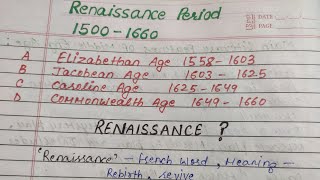 Renaissance Period
1500 - 1660
DATE
PAGE
A Elizabethan Age 1558 - 1603
B Jacobean Age 1603 - 1625
C Caroline Age 1625 - 1649
D Commonwealth Age 1649 - 1660
RENAISSANCE ?
'Renaissance' - French word, Meaning -
Rebirth, revive